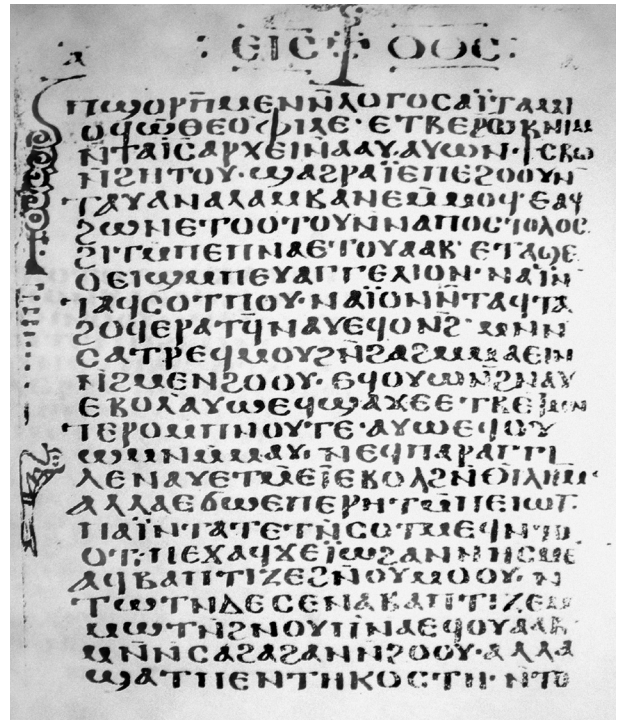 ⲁ
ⲉⲓⲥ ⲑⲟⲥ
ⲡϣⲟⲣⲡ̅ⲙⲉⲛⲛ̅ⲗⲟⲅⲟⲥⲁⲓ̈ⲧⲁⲙⲓ
ⲟϥⲱ̅ⲑⲉⲟⲫⲓⲗⲉ· ⲉⲧⲃⲉϩⲱⲃⲛⲓⲙ
ⲛ̅ⲧⲁⲓ̅ⲥ̅ⲁⲣⲭⲉⲓⲛⲁⲁⲩ. ⲁⲩⲱⲛ·ϯⲥⲃⲱ
ⲛ̅ϩⲏⲧⲟⲩ· ϣⲁϩⲣⲁⲓ̈ⲉⲡⲉϩⲟⲟⲩⲛ
ⲧⲁⲩⲁⲛⲁⲗⲁⲙⲃⲁⲛⲉⲙ̅ⲙⲟϥ· ⲉⲁϥ
ϩⲱⲛⲉⲧⲟⲟⲧⲟⲩⲛⲛⲁⲡⲟⲥⲧⲟⲗⲟⲥ
ϩⲓⲧⲙ̅ⲡⲉⲡⲛⲁⲉⲧⲟⲩⲁⲁⲃ ⲉⲧⲁϣⲉ
ⲟⲉⲓϣⲙ̅ⲡⲉⲩⲁⲅⲅⲉⲗⲓⲟⲛ· ⲛⲁⲓ̈ⲛ
ⲧⲁϥⲥⲟⲧⲡⲟⲩ· ⲛⲁⲓ̈ⲟⲛⲛ̅ⲧⲁϥⲧⲁ
ϩⲟϥⲉⲣⲁⲧϥ̅ⲛⲁⲩⲉϥⲟⲛϩ· ⲙⲛⲛ
ⲥⲁⲧⲣⲉϥⲙⲟⲩϩⲛ̅ϩⲁϩⲙ̅ⲙⲁⲉⲓⲛ
ⲛ̅ϩⲙⲉⲛϩⲟⲟⲩ· ⲉϥⲟⲩⲱⲛϩ̅ⲛⲁⲩ
ⲉⲃⲟⲗⲁⲩⲱⲉϥϣⲁϫⲉⲉⲧⲃⲉⲧⲙⲛ
ⲧⲉⲣⲟⲙ̅ⲡⲛⲟⲩⲧⲉ· ⲁⲩⲱⲉϥⲟⲩ
ⲱⲙⲛⲙ̅ⲙⲁⲩ· ⲛⲉϥⲡⲁⲣⲁⲅⲅⲓ
ⲗⲉⲛⲁⲩⲉⲧⲙ̅ⲉⲓ̈ⲉⲃⲟⲗϩⲛ̅ⲑⲓⲗⲏⲙ·
ⲁⲗⲗⲁⲉϭⲱⲉⲡⲉⲣⲏⲧⲙ̅ⲡⲉⲓⲱⲧ
ⲡⲁⲓ̈ⲛⲧⲁⲧⲉⲧⲛ̅ⲥⲟⲧⲙⲉϥⲛ̅ⲧⲟ
ⲟⲧ· ⲡⲉϫⲁϥϫⲉⲓ̈ⲱϩⲁⲛⲛⲏⲥⲙⲉ
ⲁϥⲃⲁⲡⲧⲓⲍⲉϩⲛⲟⲩⲙⲟⲟⲩ· ⲛ
ⲧⲱⲧⲛⲇⲉⲥⲉⲛⲁⲃⲁⲡⲧⲓⲍⲉⲙ
ⲙⲱⲧⲛ̅ϩⲛⲟⲩⲡ̅ⲛ̅ⲁ̅ⲉϥⲟⲩⲁⲁⲃ
ⲙⲛ̅ⲛ̅ⲥⲁϩⲁϩⲁⲛⲛϩⲟⲟⲩ· ⲁⲗⲗⲁ
ϣⲁⲧⲡⲉⲛⲧⲏⲕⲟⲥⲧⲏ· ⲛⲧⲟ